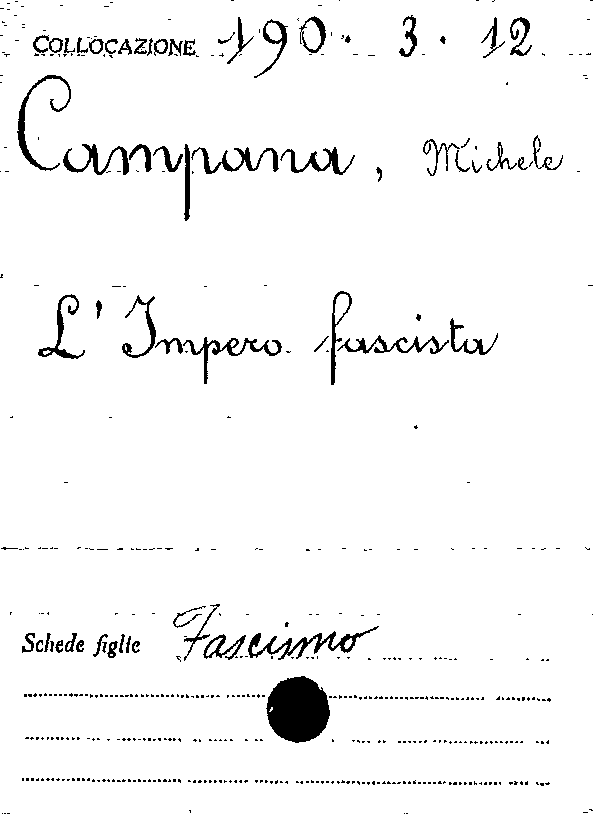 COLLOCAZIONE 190. 3. 12
Campana, Michele
L'Impero fascista
Schede figlie Fascismo